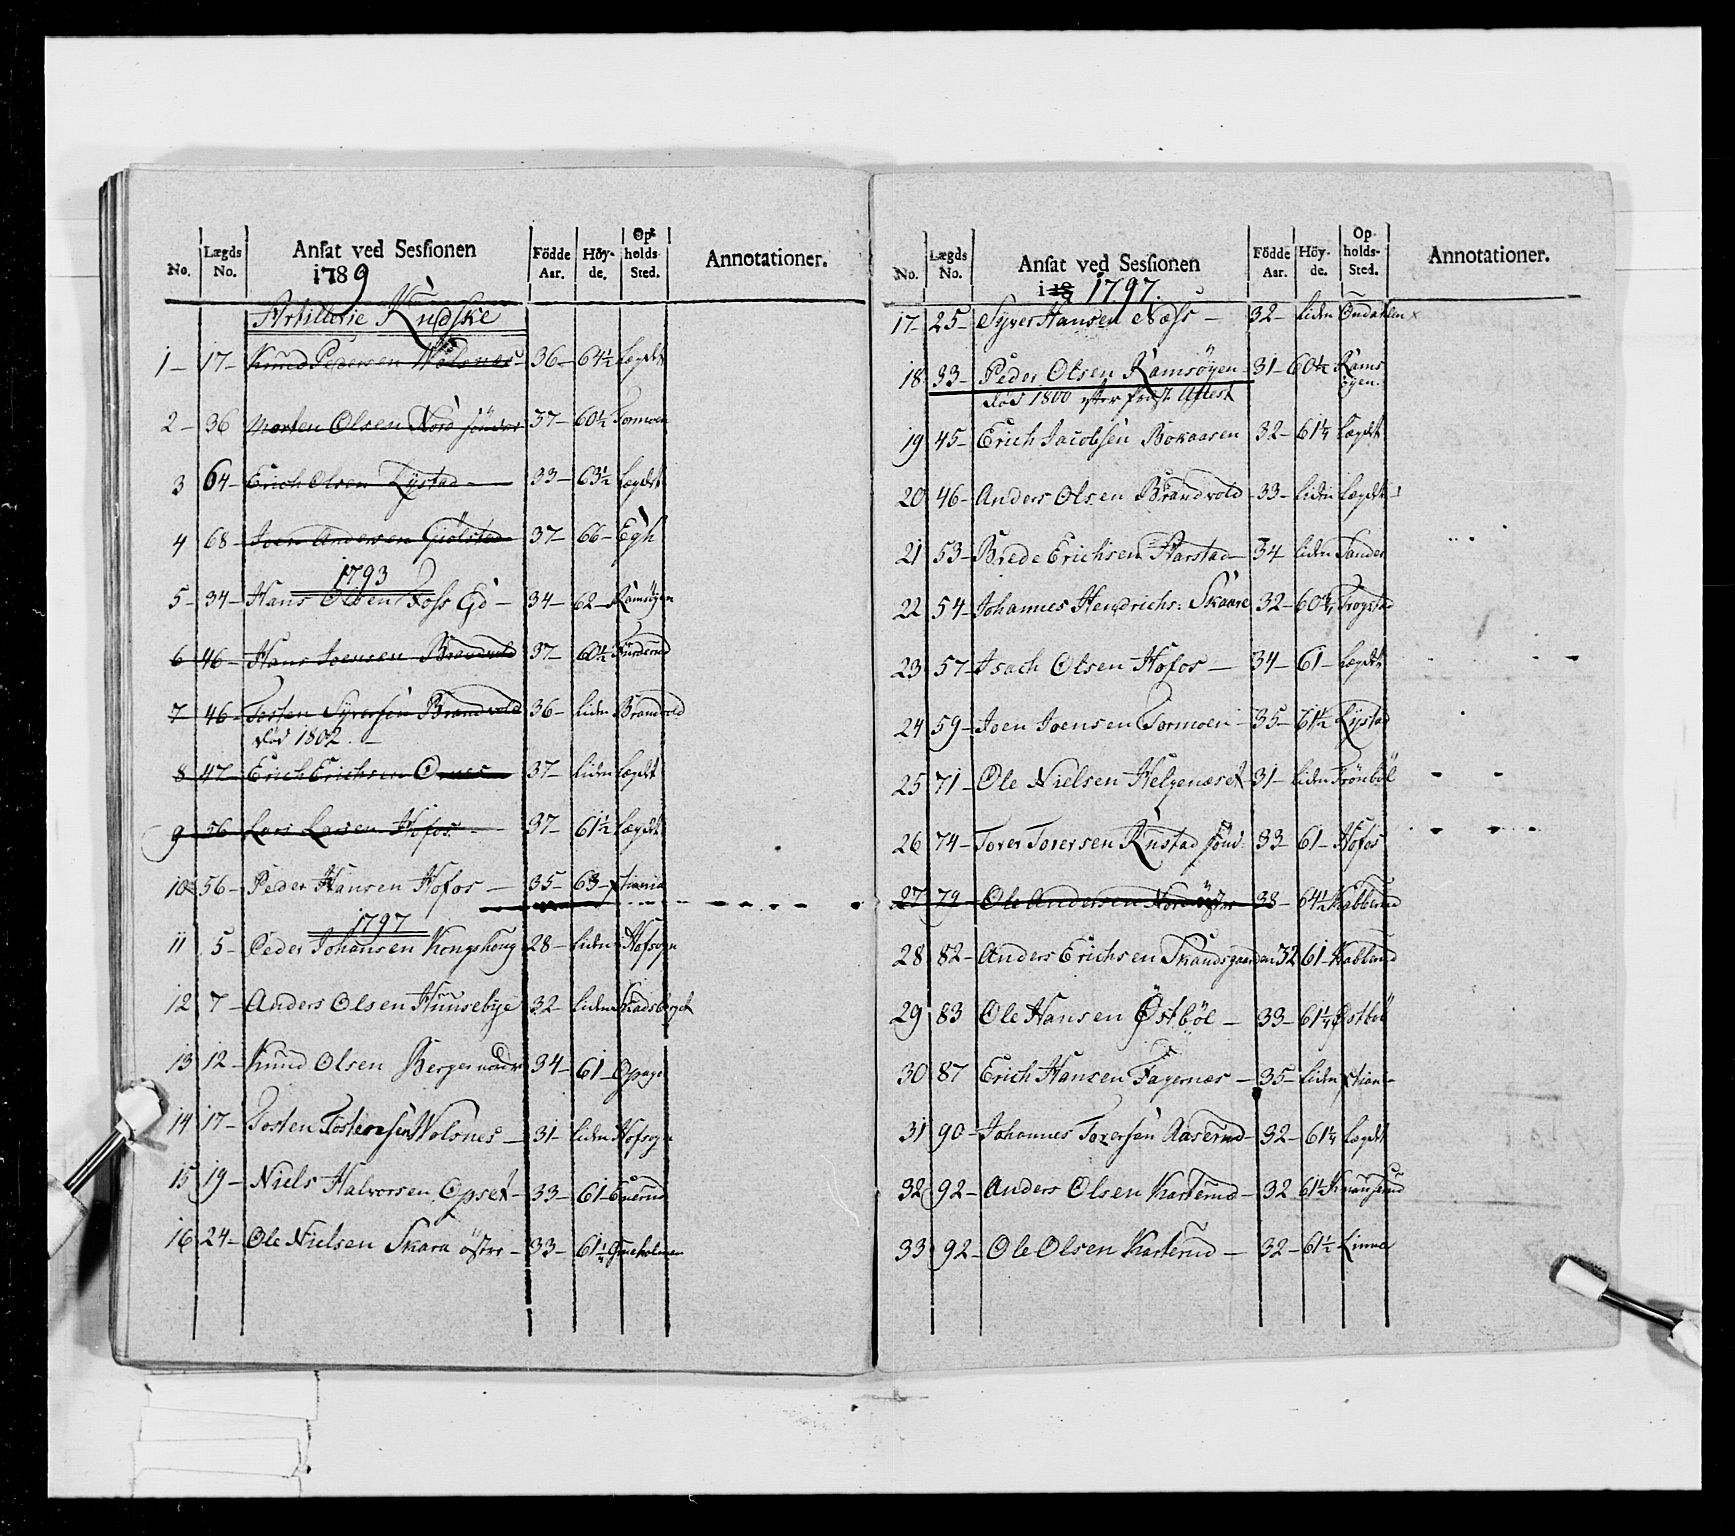 No. Lægds No. Ansat ved Sessionen i 1789 Födde Aar. Höyde. Opholds-Sted. Annotationer.
Artillerie Kudske
1 — 17 — Knud Pedersen Wolsnes 36 — 64½ Lægdet
2 — 36 Morten Olsen Nord söndre 37 — 60½ Tormoen
3 64 — Erich Olsen Lystad — 33 — 63½ Lægdet
4 68 — Joen Andersen Giölstad 37 — 66 — Egh
1793
5 — 34 — Hans Olsen Foss Ed — 34 — 62 — Ramsöyen
6 46 — Hans Joensen Brandvold 37 — 60½
7 46 — Tosten Syversen Brandvold 36 — liden Brandvold
död 1802. —
8 47 — Erich Erichsen 37 — liden Lægdet
9 56 Lars Larsen Hofos — 37 — 61½ Lægdet
10 56 — Peder Hansen Hofos — 35 — 63 —
1797
11 5 — Peder Johansen Kongshoug 28 — liden Hofsogn
12 7 — Anders Olsen Huusebye 32 — liden
13 12 — Knud Olsen Berger nordre 34 — 61 —
14 17 — Tosten Tostensen Wolsnes — 31 — liden Hofsogn
15 19 — Niels Halvorsen Opset — 33 — 61 — Gruerud
16 24 — Ole Nielsen Skara östre — 33 — 61¼ Grueholmen
No. Lægds No. Ansat ved Sessionen i 18 1797. Födde Aar. Höyde. Opholds-Sted. Annotationer.
17 — 25 — Syver Hansen Næss — 32 — liden Ondahlen
18 33 — Peder Olsen Ramsöyen — 31 — 60½ Ramsöyen.
död 1800 efter Attest
19 45 — Erich Jacobsen Bokaasen 32 — 61¼ Lægdet
20 46 — Anders Olsen Brandvold — 33 — liden Lægdet
21 53 — Brede Erichsen Harstad — 34 liden Sander
22 54 — Johannes Hendrichs: Skaare 32 — 60¾ Frogstad
23 57 — Isach Olsen Hofos — 34 — 61 — Lægdet
24 59 — Joen Joensen Tormoen — 35 — 61½ Lystad
25 71 — Ole Nielsen Helgenæset 31 — liden Frönböl
26 74 — Torer Torersen Rustad sönd. 33 — 61 — Hofos
27 79 — Ole Andersen Nord östre 38 — 64½ Kabberud
28 82 — Anders Erichsen Skandsgaarden 32 61 — Kabberud
29 83 Ole Hansen Östböl — 33 — 61¼ Östböl
30 87 Erich Hansen Fagernæs — 35 — liden
31 90 — Johannes Torersen Aaserud — 32 — 61¼ Lægdet
32 92 — Anders Olsen Karterud — 32 61½
33 92 — Ole Olsen Karterud — 32 — 61½ Linna